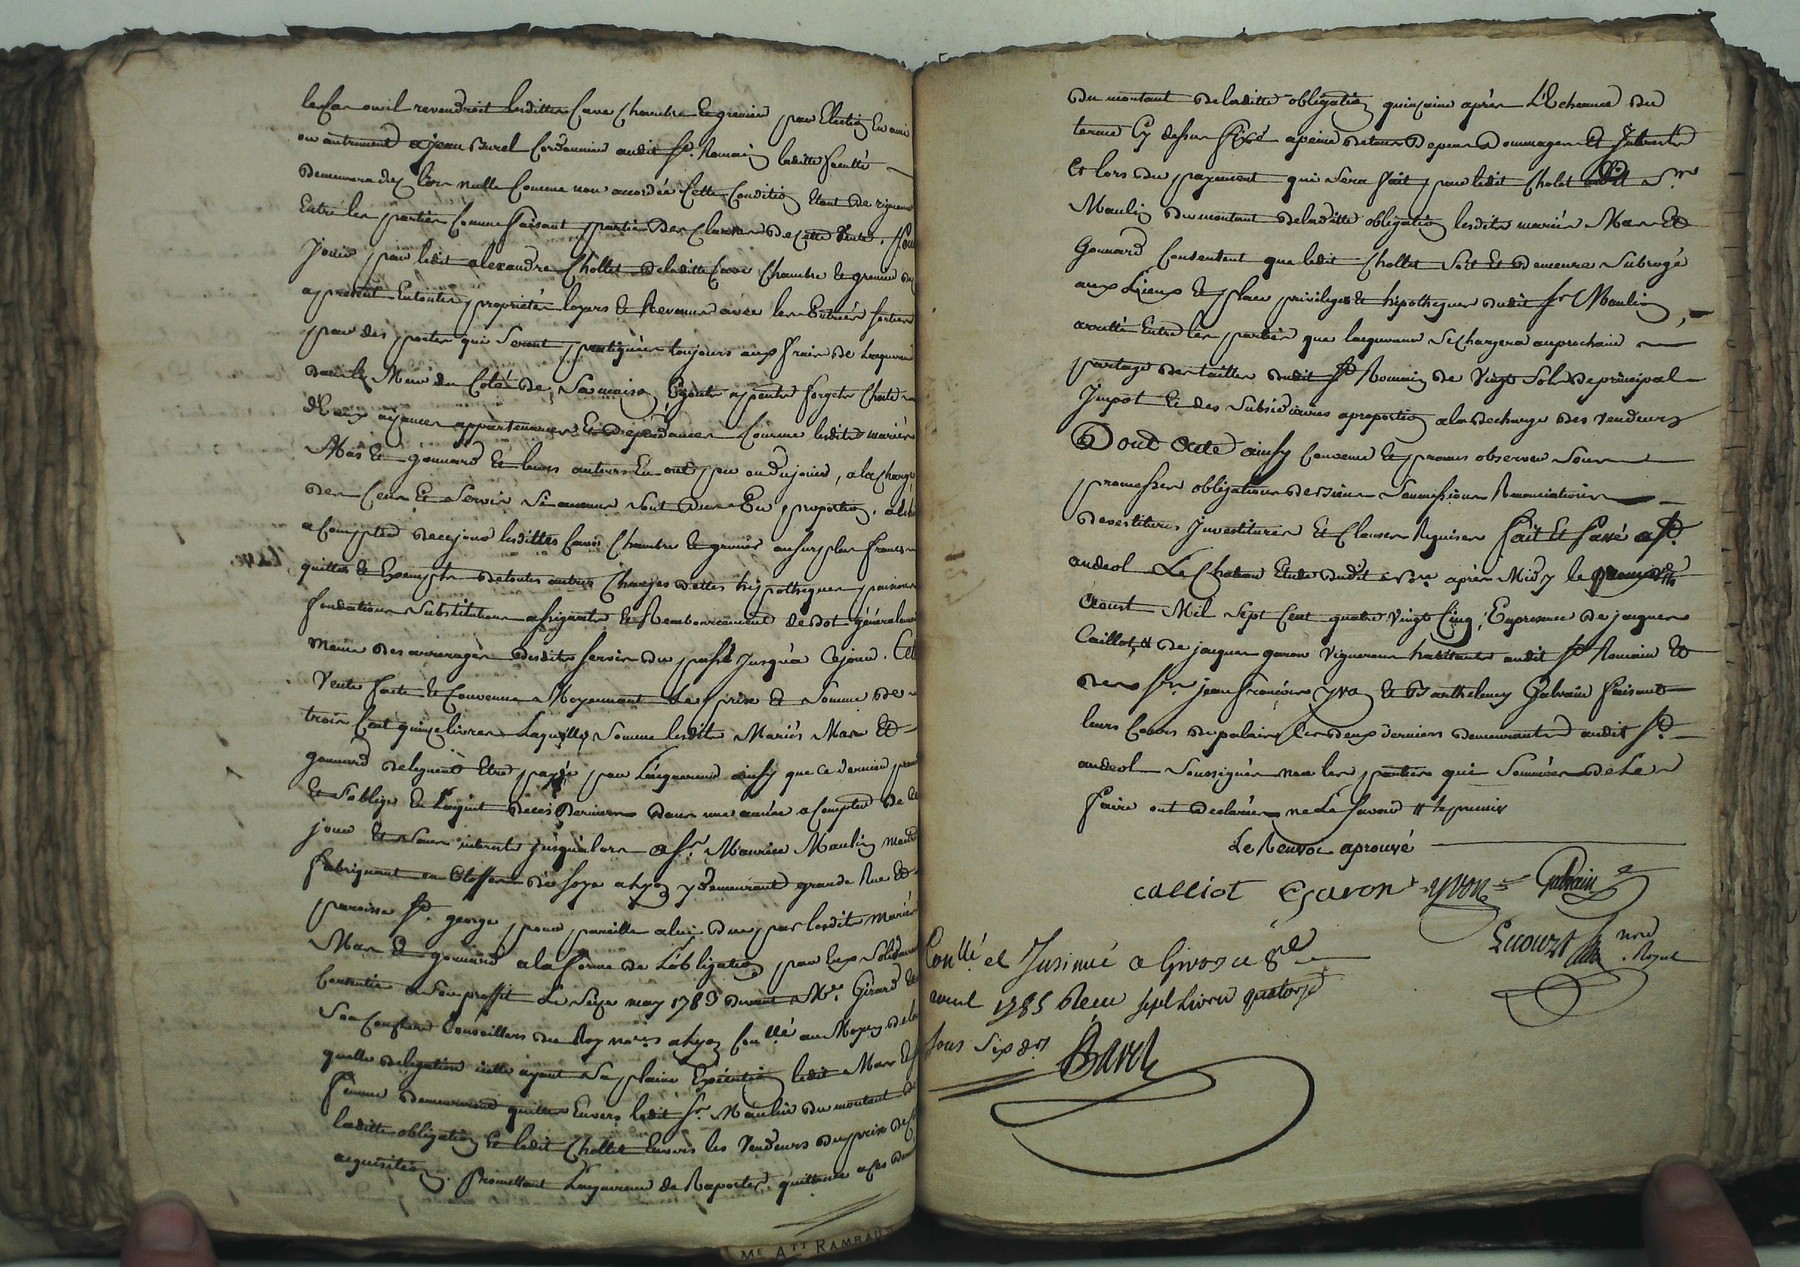 le cas ou il revendroit lesdittes Cave Chambre & grenier par Election en ami
ou autrement a jean Burel Cordonnier audit St. Romain laditte faculté
demeurera dez lors nulle Comme non accordée Cette Condition étant de rigueur
Entre les parties Comme faisant partie des Clauses de cette vente. pour
Jouir par ledit alexandre Chollet de laditte Cave Chambre & grenier des
a present En toute propriété loyers & Revenus avec les Entrées sorties
par des portes qui seront pratiquées toujours aux frais de l'acquereur
dans le Mur du Coté de sa maison,
& aux aizances appartenances & dépendances Comme lesdits mariés
Mas & gonnard & leurs auteurs En ont pu ou du jouir, a la charge
des Cens & Servis Si aucuns sont dus En proportion,
a Compter de ce jour lesdittes Cave Chambre & grenier au surplus francs
quittes & Exempts de toutes autres Charges dettes hypotheques pensions
fondations substitutions & Remboursement de dot généralement
meme des arrerages desdits servis du passé Jusqu'a Cejour. Cette
Vente faite & Convenue Moyennant Le prix & Somme de
trois Cent quinze livres Laquelle Somme lesdits Mariés Mas &
gonnard deleguent Etre payée par l'acquereur ainsy que ce dernier promet
& s'oblige En l'acquit de ces Derniers dans une année a Compter de ce
jour & sans interets jusqu'alors a Sr. Maurice Maulin marchand
fabriquant en Etoffes de soye a Lyon y demeurant grande Rue &
paroisse St. george, pour pareille a lui due par lesdits mariés
Mas & gonnard a la forme de L'obligation par Eux Solidairement
Consentie a Son proffit Le Seize may 1783 devant Me. Girard &
Son Confrere Conseillers du Roy nores. a Lyon Conllé au Moyen de la
quelle delegation icelle ayant Sa plaine Exécution ledit Mas &
femme demeureront quittes Envers ledit Sr. Maulin du montant de
laditte obligation Et ledit Chollet Envers les Vendeurs du prix de son
acquisition. Promettant L'acquereur de Raporter quittance a ces derniers
du montant de laditte obligation quinzaine après L'Echeance du
terme Cy dessus fixé a peine de tous depens Dommages & Interets
Et lors du payement qui Sera fait par ledit Cholet audit Sr.
Maulin du montant de laditte obligation lesdits mariés Mas &
Gonnard Consentent que ledit Chollet Soit & Demeure Subrogé
aux Lieux & place privileges & hipotheques dudit Sr. Maulin,
arretté Entre les parties que l'acquereur Se Chargera au prochain
partage des tailles dudit St Romain de Vingt Sols de principal
Impot & des Subsidiaires a proportion a la decharge des vendeurs
Dont Acte ainsy Convenu & promis observer Sous
promesses obligations de biens Soumissions Renonciations
devestitures Investitures & Clauses Requises fait & passé a St.
andeol Le Chateau Etude dudit nore. après Midy le
aoust Mil Sept Cent quatre Vingt Cinq, En presence de jacques
Caillot, & de jacques garon Vignerons habitants audit St Romain &
des Srs. jean françois yvon & Barthelemy Galvain faisants
leurs Cours de palais, les deux derniers demeurants audit St.
andeol Soussignés non les parties qui Sommées de Le
faire ont declarées ne Le Savoir
Le Renvoi aprouvé
calliot Garon yvon Galvain
Lecourt nore. Royal
Conllé et Insinué a Givors ce 8e
aout 1785 Recu sept livres quatorze
sous six drs
Bavet
ME ATT RAMBAU